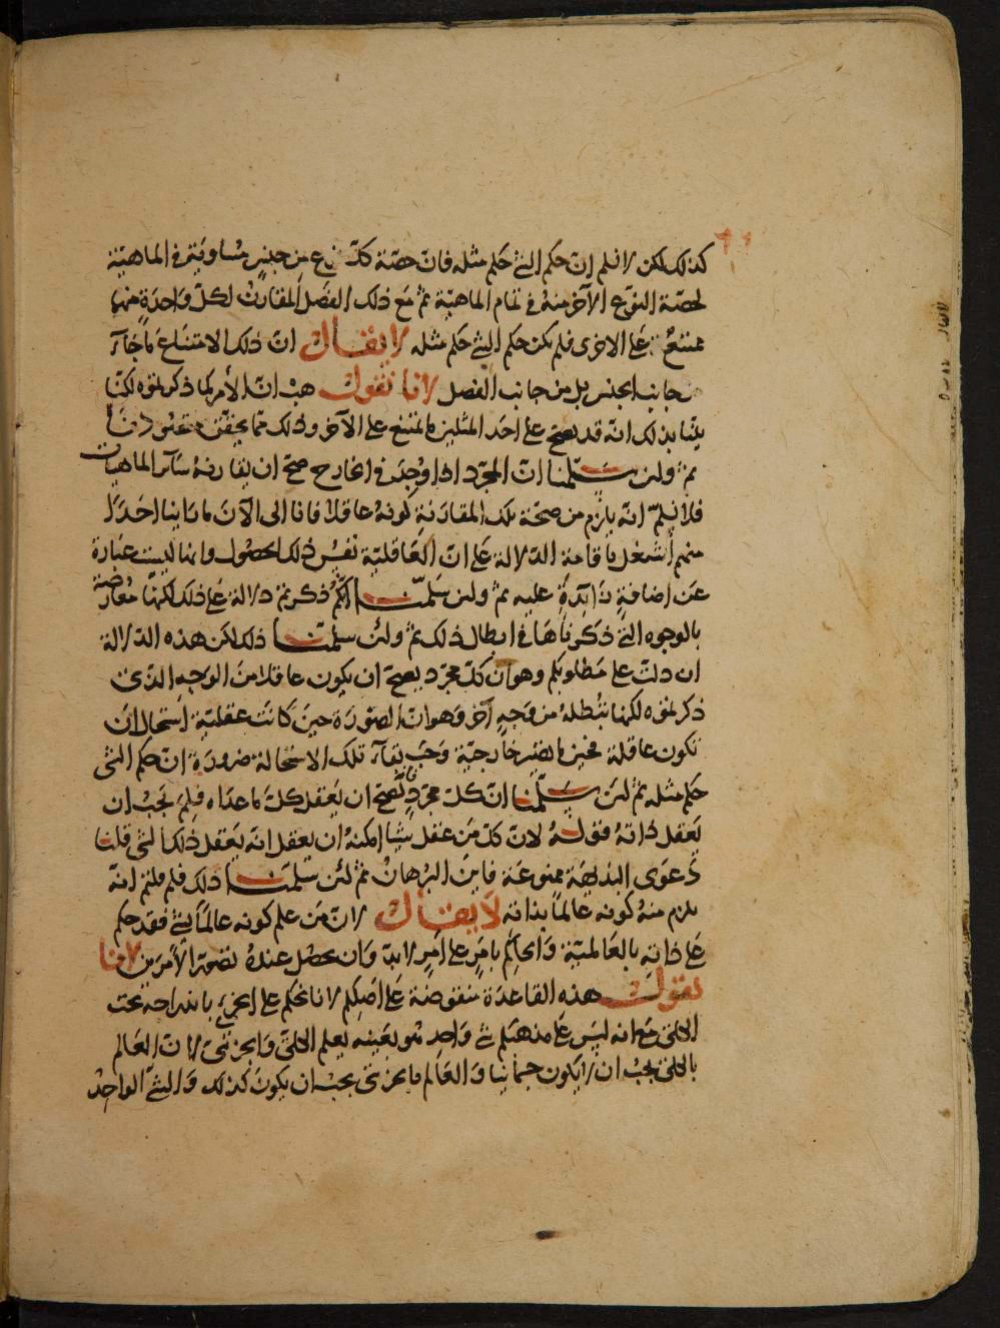 كذلك لكن لا نسلم ان حكم الشئ حكم مثله فان حصة كل نوع من جنس مساوية في الماهية
لحصة النوع الآخر منه في تمام الماهية ثم مع ذلك الفصل المقارن لكل واحدة منهما
ممتنع على الاخرى فلم يكن حكم الشئ حكم مثله لا يقال ان ذلك الامتناع ما جآء
من جانب الجنس بل من جانب الفصل لانا نقول هب ان الأمر كما ذكرتموه لكنا
بيّنا بذلك انه قد يصح على احد المثلين ما يمتنع على الآخر وذلك مما يحقق مقصودنا
ثم ولئن سلمنا ان المجرد اذا وجد في الخارج صح ان يقارنه سآئر الماهيات
فلا نسلم انه يلزم من صحة تلك المقارنة كونه عاقلا فانا الى الآن ما راينا احدا
منهم اشتغل باقامة الدلالة على ان العاقلية نفس ذلك الحصول وانها ليست عبارة
عن اضافة زآئدة عليه ثم ولئن سلمنا انكم ذكرتم دلالة على ذلك لكنها معارضة
بالوجوه التي ذكرناها في ابطال ذلك ثم ولئن سلمنا ذلك لكن هذه الدلالة
ان دلت على مطلوبكم وهو ان كل مجرد يصح ان يكون عاقلا من الوجه الذى
ذكرتموه لكنها تبطله من وجه آخر وهو ان الصورة حين كانت عقلية استحال ان
تكون عاقلة فحين ما تصير خارجية وجب بقآء تلك الاستحالة ضرورة ان حكم الشئ
حكم مثله ثم لئن سلمنا ان كل مجرد يصح ان يعقل كل ما عداه فلم يجب ان
يعقل ذاته قوله لان كل من عقل شيا امكنه ان يعقل انه يعقل ذلك الشئ قلنا
دعوى البداهة ممنوعة فاين البرهان ثم لئن سلمنا ذلك فلم قلتم انه
يلزم منه كونه عالما بذاته لا يقال لان من علم كونه عالما بشئ فقد حكم
على ذاته بالعالمية والحاكم بامر على امر لا بد وان يحصل عنده تصور الأمرين لانا
نقول هذه القاعدة منقوضة على اصلكم لانا نحكم على الجزئى باندراجه تحت
الكلى مع انه ليس على مذهبكم شئ واحد هو بعينه يعلم الكلى والجزئى لان العالم
بالكلى يجب ان لا يكون جسمانيا والعالم بالجزئى يجب ان يكون كذلك والشئ الواحد